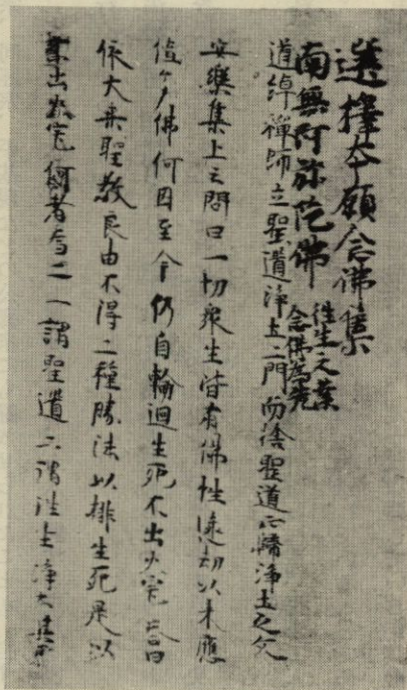 選擇本願念佛集
南無阿弥陀佛
往生之業
念佛為先
道綽禪師立聖道淨土二門而捨聖道正歸淨土之文
安樂集上云問曰一切衆生皆有佛性遠劫以来應
值多佛何因至今仍自輪迴生死不出火宅答曰
依大乗聖教良由不得二種勝法以排生死是以
不出火宅何者為二一謂聖道二謂往生淨土其